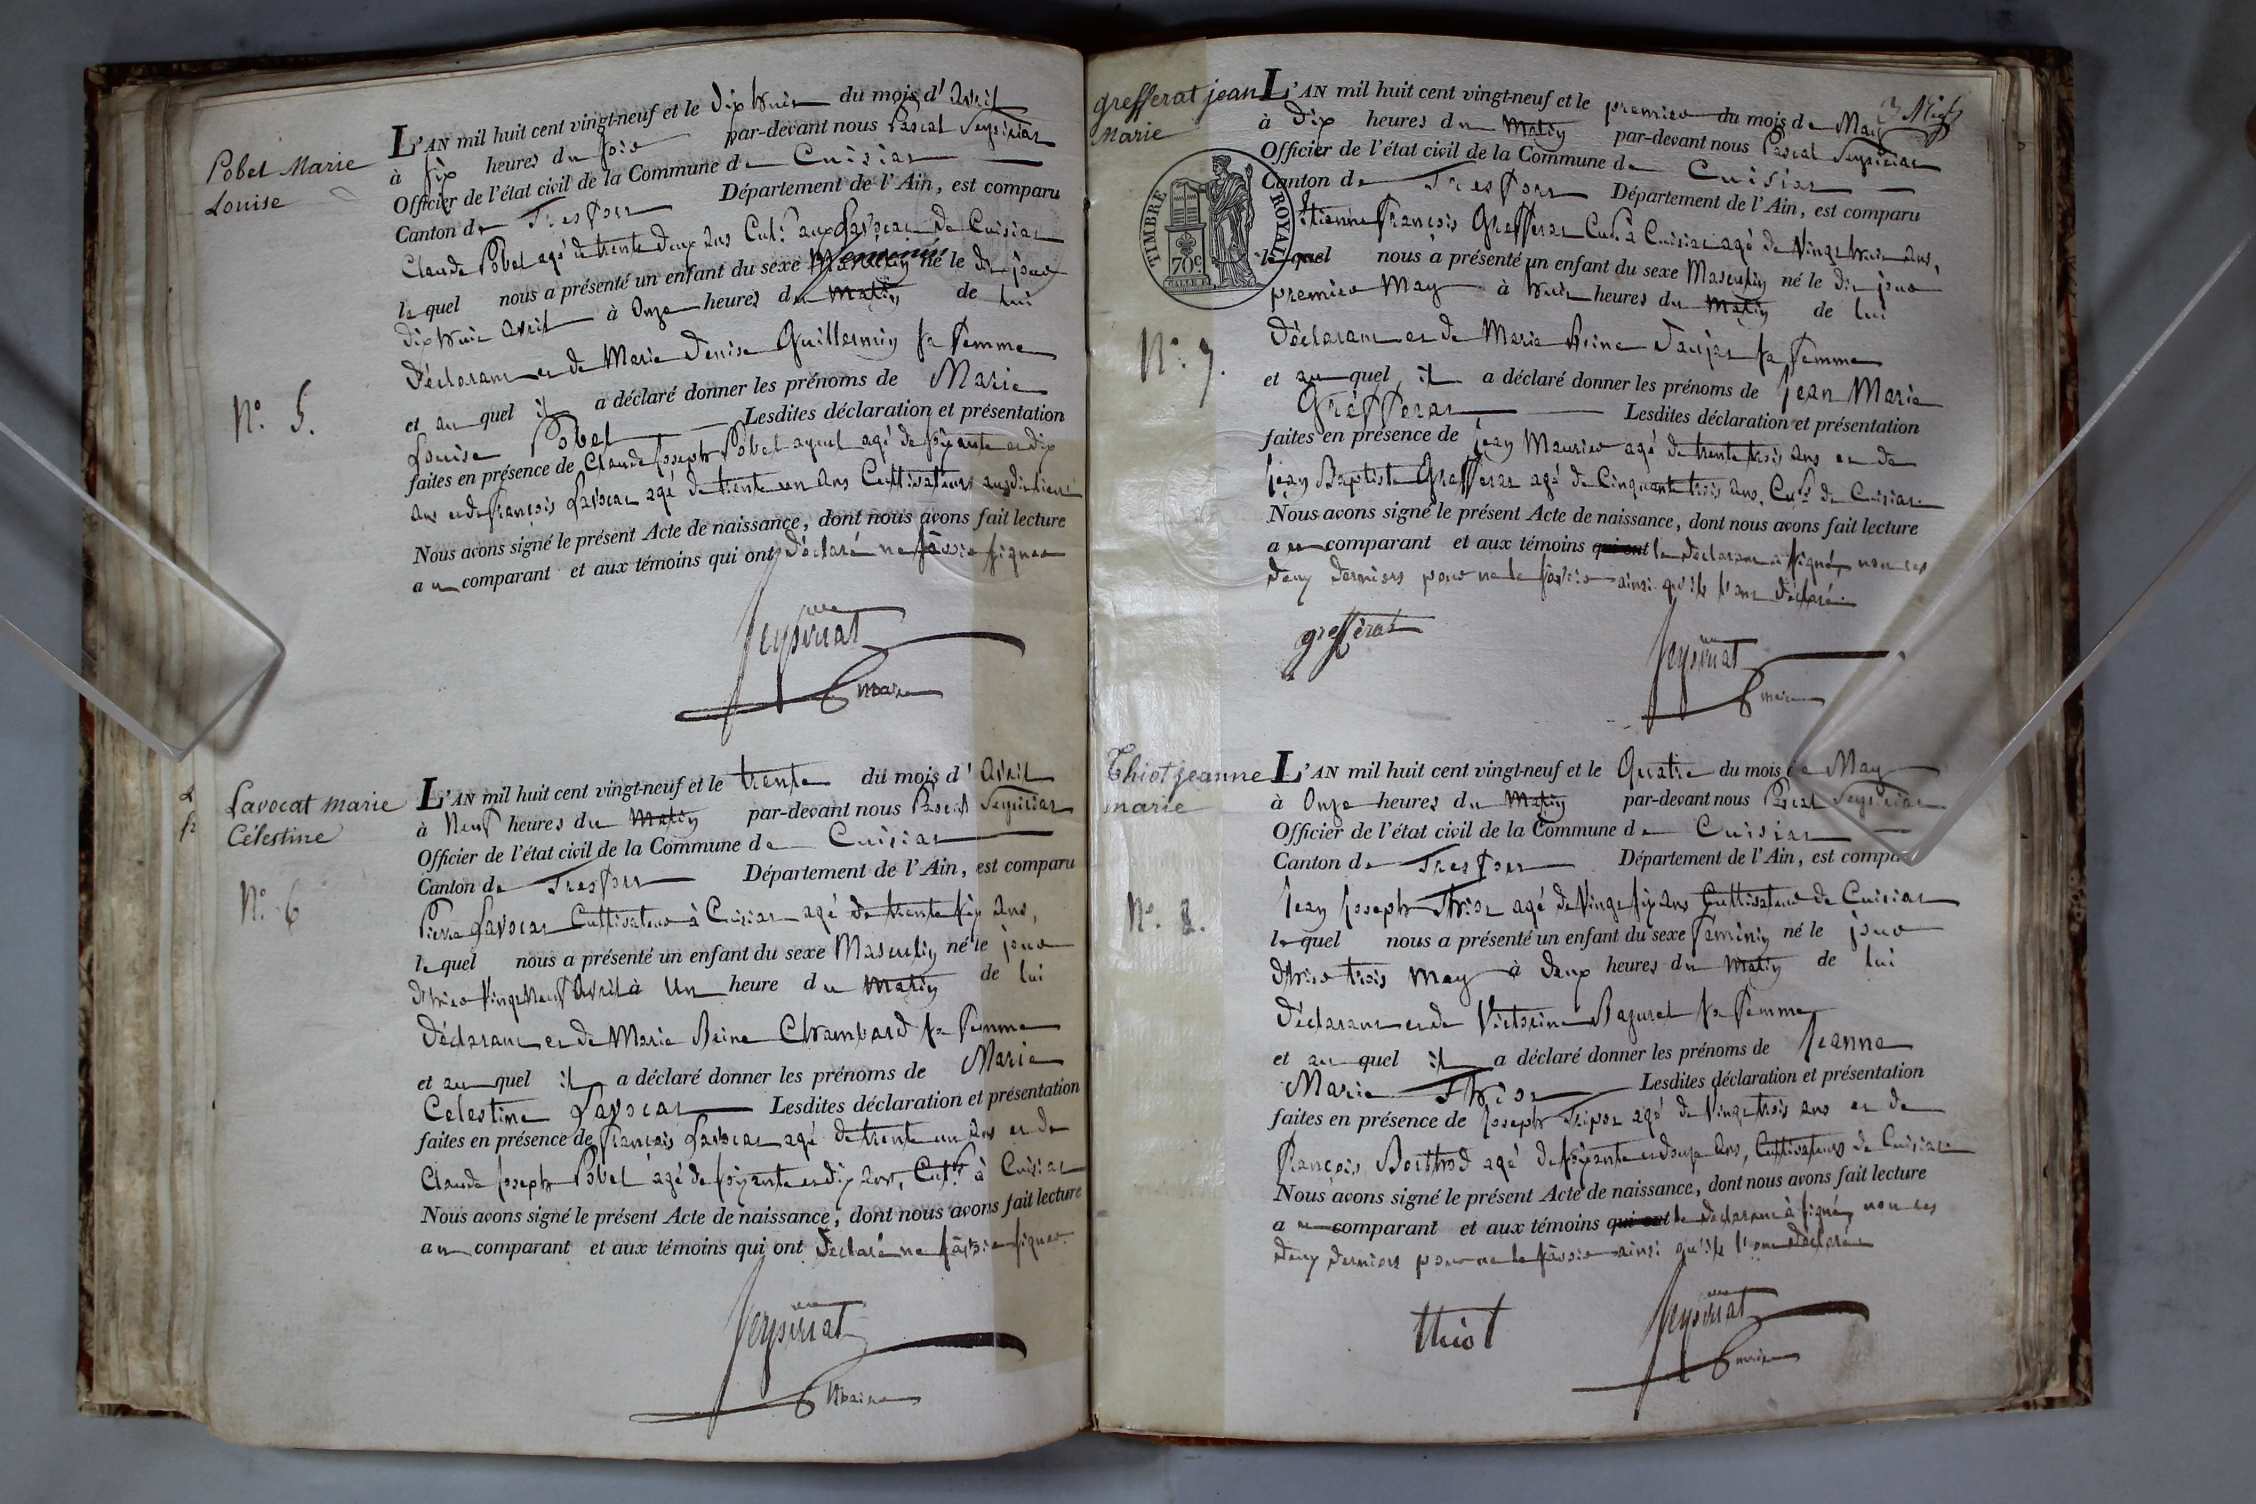 Pobel Marie
Louise
N.o 5.
L'AN mil huit cent vingt-neuf et le dix huit du mois d'avril
à six heures du soir par-devant nous Pascal Seysiriat
Officier de l'état civil de la Commune de Cuisiat
Canton de Treffort Département de l'Ain, est comparu
Claude Pobel agé de trente deux ans Cult.r aux Lavocat de Cuisiat
lequel nous a présenté un enfant du sexe Masculin féminin né le dit jour
dix huit avril à onze heures du matin de lui
déclarant et de Marie Denise Guillermin sa femme
et auquel il a déclaré donner les prénoms de Marie
Louise Pobel Lesdites déclaration et présentation
faites en présence de Claude Joseph Pobel ayeul agé de soixante et dix
ans et de françois Lavocat agé de trente un ans Cultivateurs audit lieu
Nous avons signé le présent Acte de naissance, dont nous avons fait lecture
au comparant et aux témoins qui ont déclaré ne savoir signer
Seysiriat
maire
Lavocat marie
Célestine
N.o 6
L'AN mil huit cent vingt-neuf et le trente du mois d'avril
à Neuf heures du Matin par-devant nous Pascal Seysiriat
Officier de l'état civil de la Commune de Cuisiat
Canton de Treffort Département de l'Ain, est comparu
Pierre Lavocat Cultivateur à Cuisiat agé de trente six ans,
lequel nous a présenté un enfant du sexe Masculin né le jour
d'hier vingt neuf avril à une heure du matin de lui
déclarant et de Marie Reine Chambard sa femme
et auquel il a déclaré donner les prénoms de Marie
Celestine Lavocat Lesdites déclaration et présentation
faites en présence de françois Lavocat agé de trente un ans et de
Claude Joseph Pobel agé de soixante et dix ans, Cult.rs à Cuisiat
Nous avons signé le présent Acte de naissance, dont nous avons fait lecture
au comparant et aux témoins qui ont déclaré ne savoir signer.
Seysiriat
Maire
grefferat jean
Marie
TIMBRE ROYAL
70c
N.o 7.
L'AN mil huit cent vingt-neuf et le premier du mois de May
à dix heures du Matin par-devant nous Pascal Seysiriat
Officier de l'état civil de la Commune de Cuisiat
Canton de Treffort Département de l'Ain, est comparu
Etienne françois Grefferat Cult.r à Cuisiat agé de vingt huit ans,
lequel nous a présenté un enfant du sexe Masculin né le dit jour
premier May à huit heures du matin de lui
déclarant et de Marie Reine Daujat sa femme
et auquel il a déclaré donner les prénoms de Jean Marie
Grefferat Lesdites déclaration et présentation
faites en présence de jean Maurier agé de trente trois ans et de
Jean Baptiste Grefferat agé de Cinquante trois ans, Cult.rs de Cuisiat
Nous avons signé le présent Acte de naissance, dont nous avons fait lecture
au comparant et aux témoins qui ont le déclarant a signé, non ces
deux derniers pour ne le savoir ainsi qu'ils l'ont déclaré
grefferat
Seysiriat
maire
Thiot jeanne
marie
N.o 8.
L'AN mil huit cent vingt-neuf et le Quatre du mois de May
à Onze heures du Matin par-devant nous Pascal Seysiriat
Officier de l'état civil de la Commune de Cuisiat
Canton de Treffort Département de l'Ain, est comparu
Jean Joseph Thiot agé de vingt six ans Cultivateur de Cuisiat
lequel nous a présenté un enfant du sexe féminin né le jour
d'hier trois may à deux heures du matin de lui
déclarant et de Victorine Bazurel sa femme
et auquel il a déclaré donner les prénoms de Jeanne
Marie Thiot Lesdites déclaration et présentation
faites en présence de Joseph Tripoz agé de vingt trois ans et de
françois Berthod agé de soixante et douze ans, Cultivateurs de Cuisiat
Nous avons signé le présent Acte de naissance, dont nous avons fait lecture
au comparant et aux témoins qui ont le déclarant a signé, non ces
deux derniers pour ne le savoir ainsi qu'ils l'ont déclaré
thiot
Seysiriat
maire